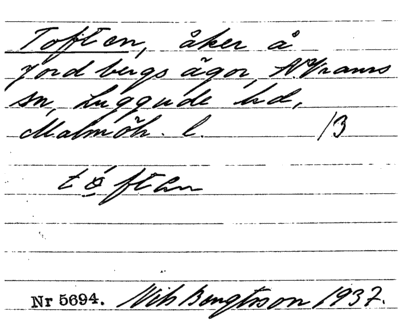 Toften, åker å
Jordbergs ägor, N Vrams
sn, Luggude hd,
Malmöh. l. 13
tóften
Nr 5694. Nils Bengtsson 1937.